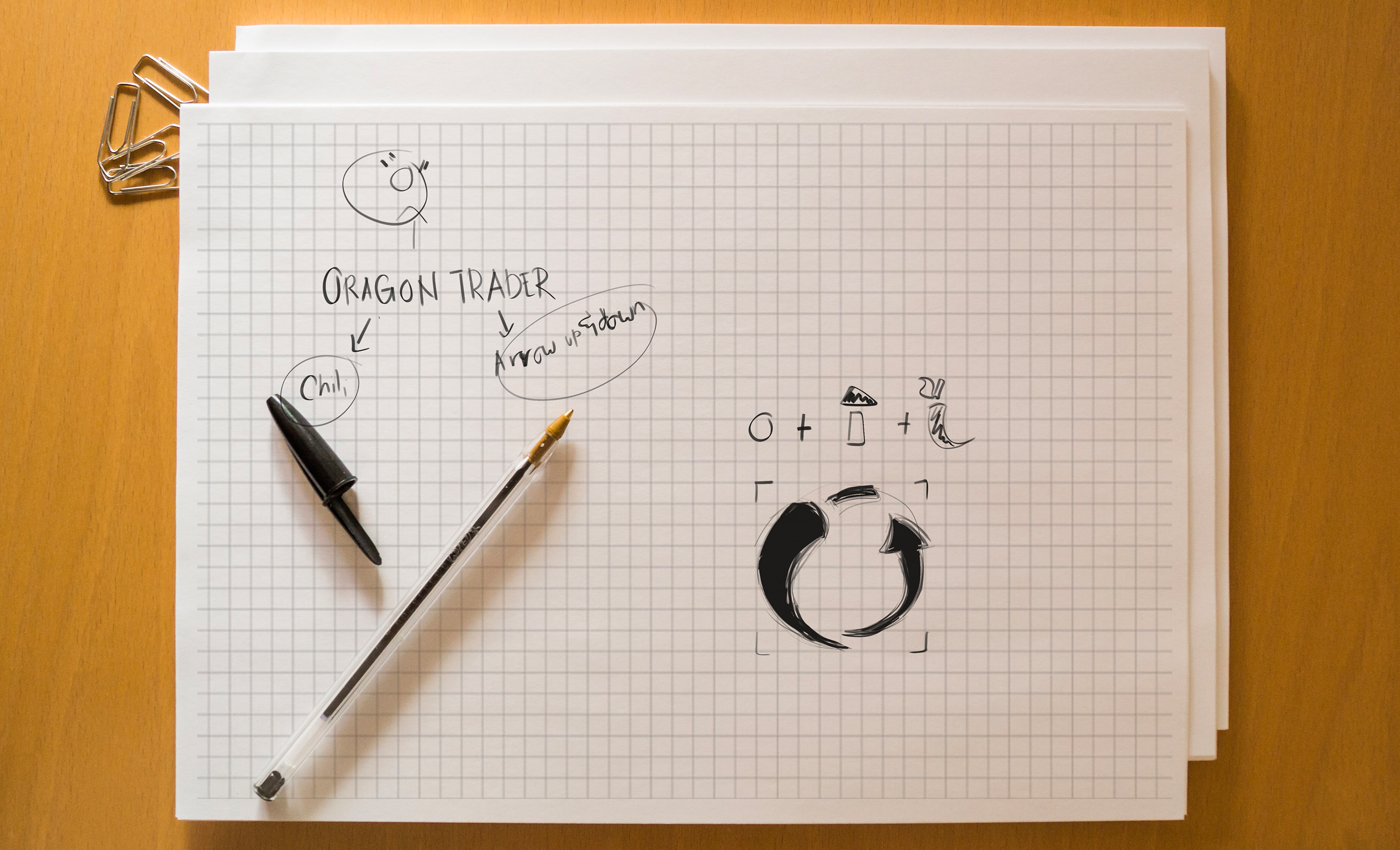 ORAGON TRADER
Chili
Arrow up & down
O + +